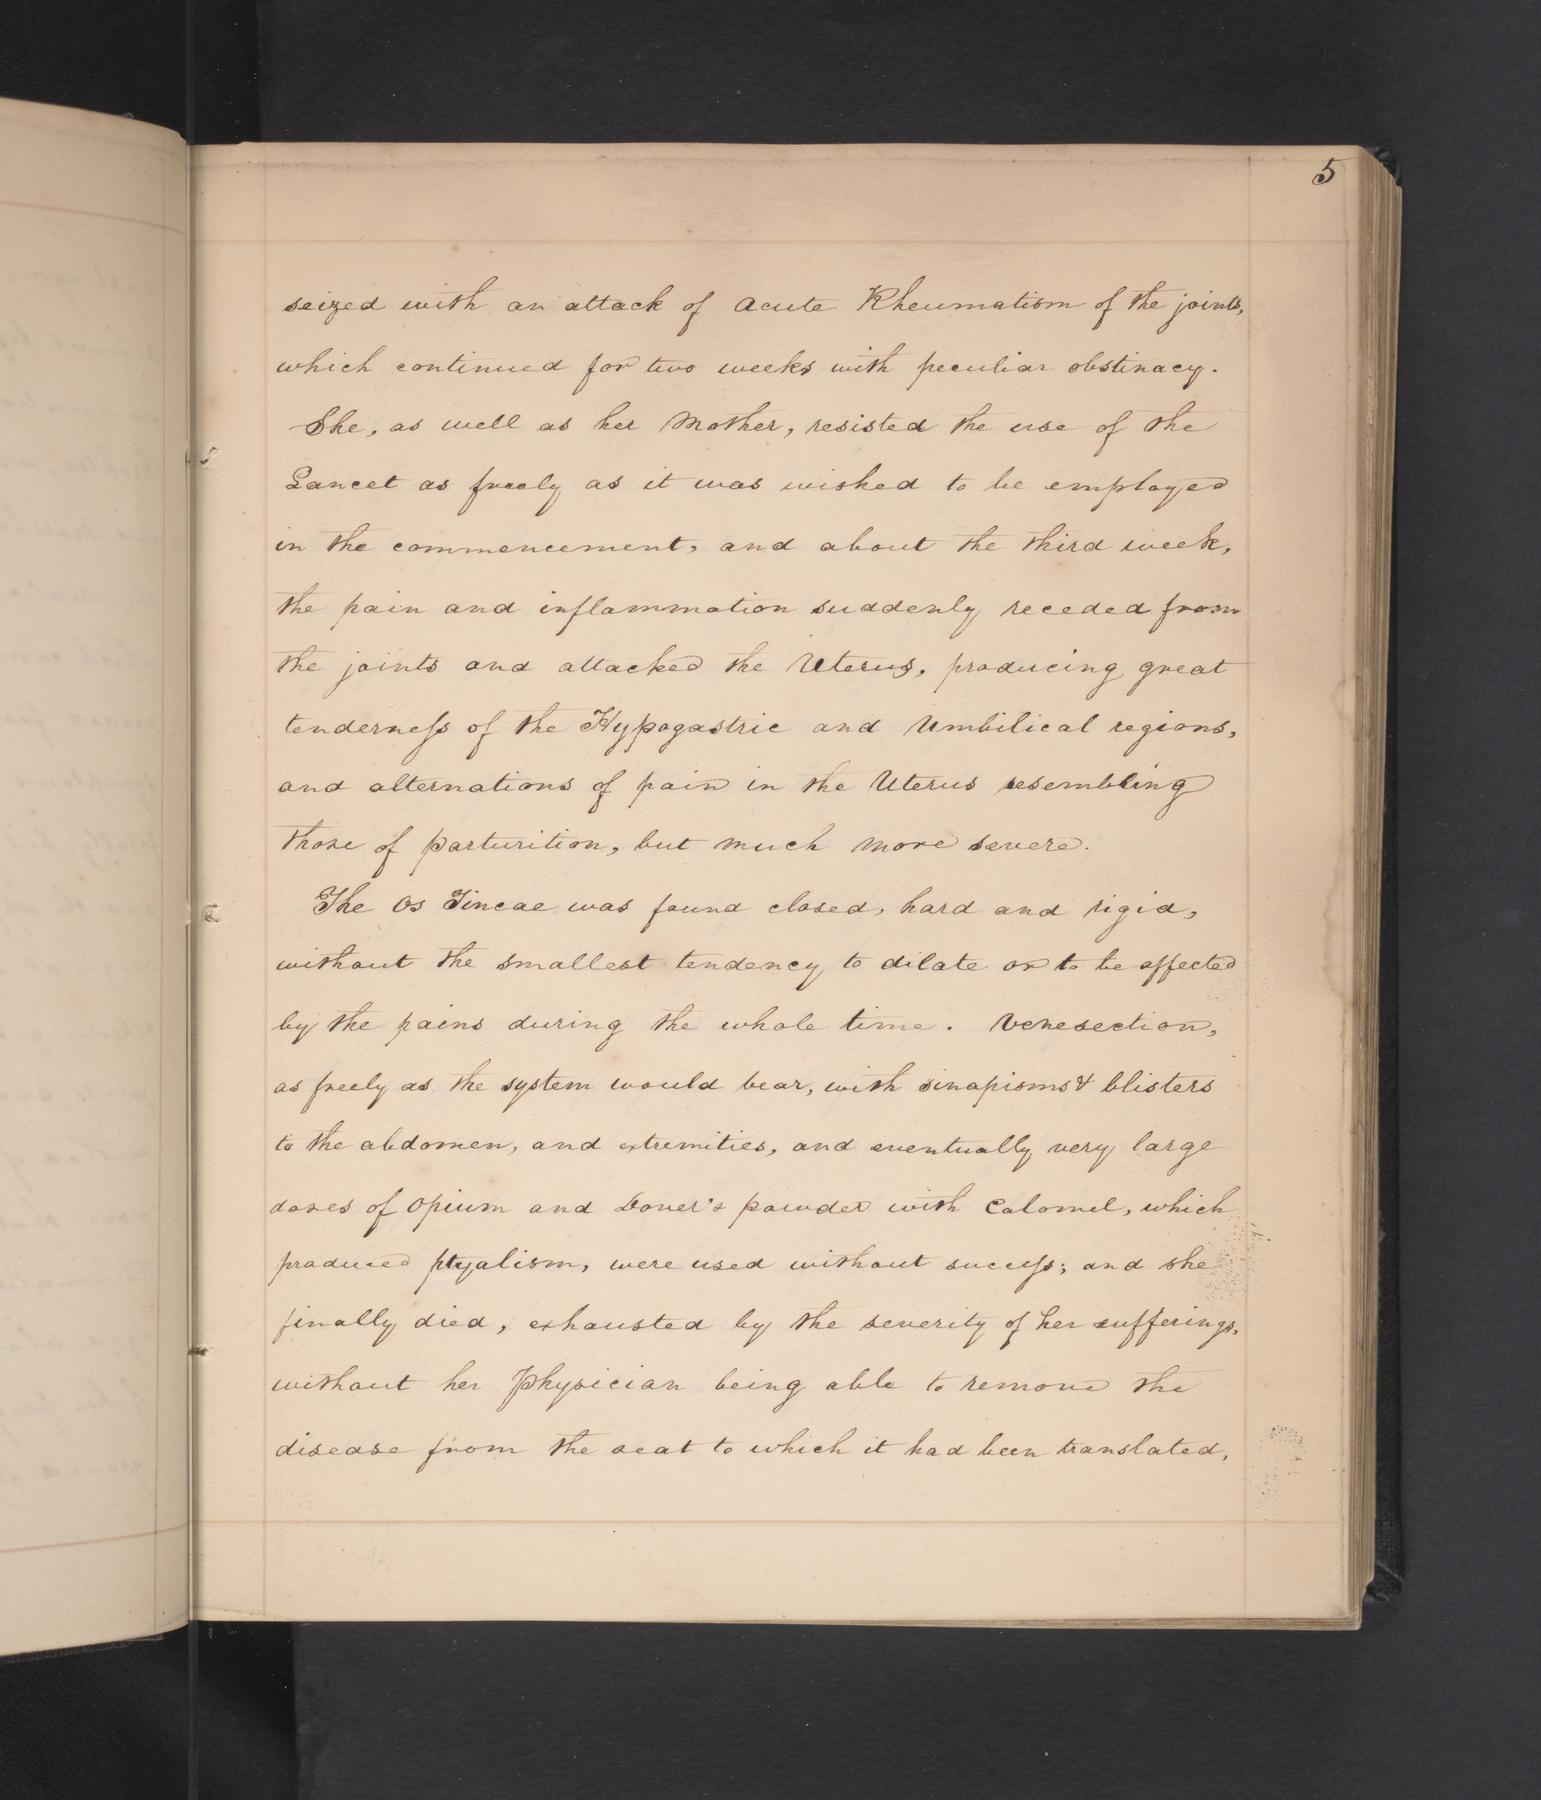 5
seized with an attack of Acute Rheumatism of the joints,
which continued for two weeks with peculiar obstinacy.
She, as well as her Mother, resisted the use of the
Lancet as freely as it was wished to be employed
in the commencement, and about the third week,
the pain and inflammation suddenly receded from
the joints and attacked the Uterus, producing great
tenderness of the Hypogastric and Umbilical regions,
and alternations of pain in the Uterus resembling
those of parturition, but much more severe.
The Os Tincae was found closed, hard and rigid,
without the smallest tendency to dilate or to be affected
by the pains during the whole time. Venesection,
as freely as the system would bear, with sinapisms & blisters
to the abdomen, and extremities, and eventually very large
doses of Opium and Dover's powder with Calomel, which
produced ptyalism, were used without success; and she
finally died, exhausted by the severity of her sufferings,
without her Physician being able to remove the
disease from the seat to which it had been translated,